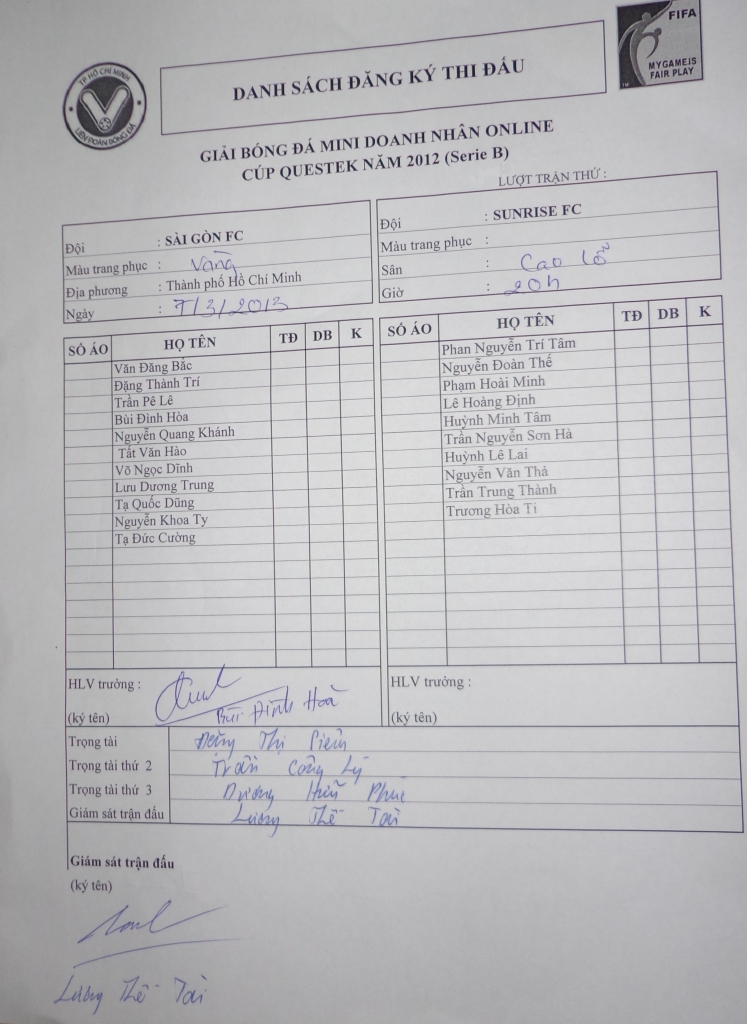 TP HỒ CHÍ MINH
LIÊN ĐOÀN BÓNG ĐÁ
DANH SÁCH ĐĂNG KÝ THI ĐẤU
FIFA
MY GAME IS
FAIR PLAY
GIẢI BÓNG ĐÁ MINI DOANH NHÂN ONLINE
CÚP QUESTEK NĂM 2012 (Serie B)
LƯỢT TRẬN THỨ :
Đội : SÀI GÒN FC
Màu trang phục : Vàng
Địa phương : Thành phố Hồ Chí Minh
Ngày : 7/3/2013
Đội : SUNRISE FC
Màu trang phục :
Sân : Cao Lỗ
Giờ : 20h
SỐ ÁO HỌ TÊN TĐ DB K
Văn Đăng Bắc
Đặng Thành Trí
Trần Pê Lê
Bùi Đình Hòa
Nguyễn Quang Khánh
Tất Văn Hào
Võ Ngọc Dĩnh
Lưu Dương Trung
Tạ Quốc Dũng
Nguyễn Khoa Ty
Tạ Đức Cường
SỐ ÁO HỌ TÊN TĐ DB K
Phan Nguyễn Trí Tâm
Nguyễn Đoàn Thế
Phạm Hoài Minh
Lê Hoàng Định
Huỳnh Minh Tâm
Trần Nguyễn Sơn Hà
Huỳnh Lê Lai
Nguyễn Văn Thả
Trần Trung Thành
Trương Hòa Ti
HLV trưởng :
(ký tên) Bùi Đình Hoà
HLV trưởng :
(ký tên)
Trọng tài Thị
Trọng tài thứ 2 Trần Công Lý
Trọng tài thứ 3 Dương Hữu Phúc
Giám sát trận đấu Lương Thế Tài
Giám sát trận đấu
(ký tên)
Lương Thế Tài